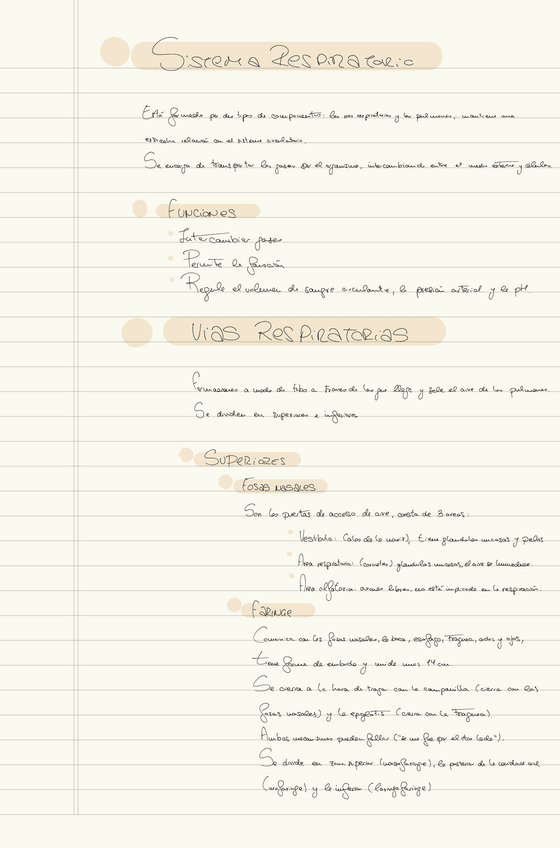 Sistema Respiratorio
Está formado por dos tipos de componentes: las vías respiratorias y los pulmones, mantiene una
estrecha relación con el sistema circulatorio.
Se encarga de transportar los gases por el organismo, intercambiando entre el medio externo y células.
Funciones
Intercambiar gases
Permite la fonación
Regula el volumen de sangre circulante, la presión arterial y le pH.
Vías Respiratorias
Formaciones a modo de tubo a traves de las que llega y sale el aire de los pulmones.
Se dividen en superiores e inferiores
Superiores
Fosas nasales
Son las puertas de acceso de aire, consta de 3 areas:
Vestíbulo: (alas de la nariz), tiene glandulas mucosas y pelos
Área respiratoria: (cornetes) glandulas mucosas, el aire se humedece.
Área olfatoria: libres, no está implicado en la respiración.
Faringe
Comunica con las fosas nasales, la boca, esofago, traquea, oidos y ojos,
tiene forma de embudo y mide unos 14 cm.
Se cierra a la hora de tragar con la campanilla (cierra con las
fosas nasales) y la epiglotis (cierra con la traquea).
Ambos mecanismos pueden fallar ("se me fue por el otro lado").
Se divide en zona superior (nasofaringe), la posterior de la cavidad oral
(orofaringe) y la inferior (laringofaringe)